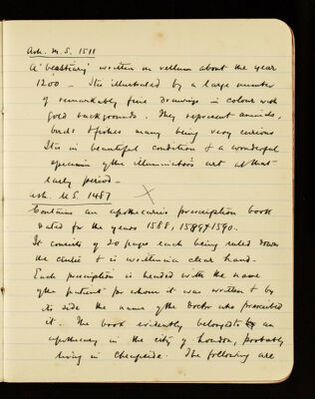 Ash. M.S. 1511
A 'bestiary' written on vellum about the year
1200 – It is illustrated by a large number
of remarkably fine drawings in colour with
gold backgrounds. They represent animals,
birds & fishes many being very curious
It is in beautiful condition & a wonderful
specimen of the illuminators art at that
early period –
Ash. M.S. 1487
Contains an apothecaries prescription book
Dated for the years 1588, 1589 & 1590.
It consists of 20 pages each being ruled down
the centre & is written in a clear hand –
Each prescription is headed with the name
of the patient for whom it was written & by
its side the name of the Doctor who prescribed
it. The book evidently belonged to an
apothecary in the city of London, probably
living in Cheapside. The following are